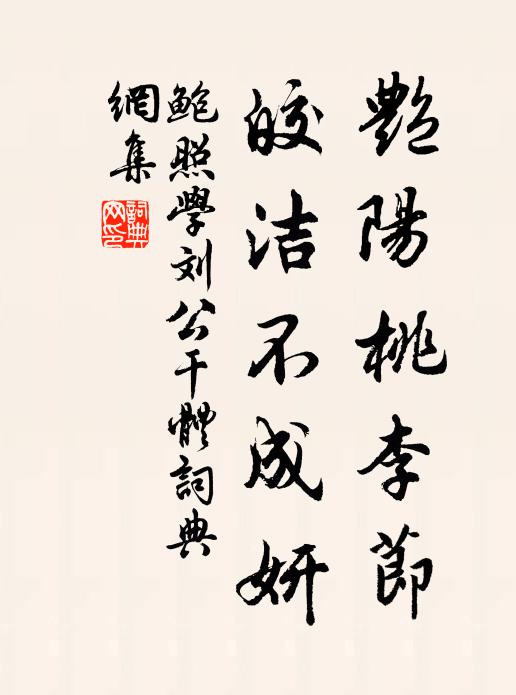 艷陽桃李節
皎洁不成妍
鮑照學刘公干體詞典
網集
詞典
网印